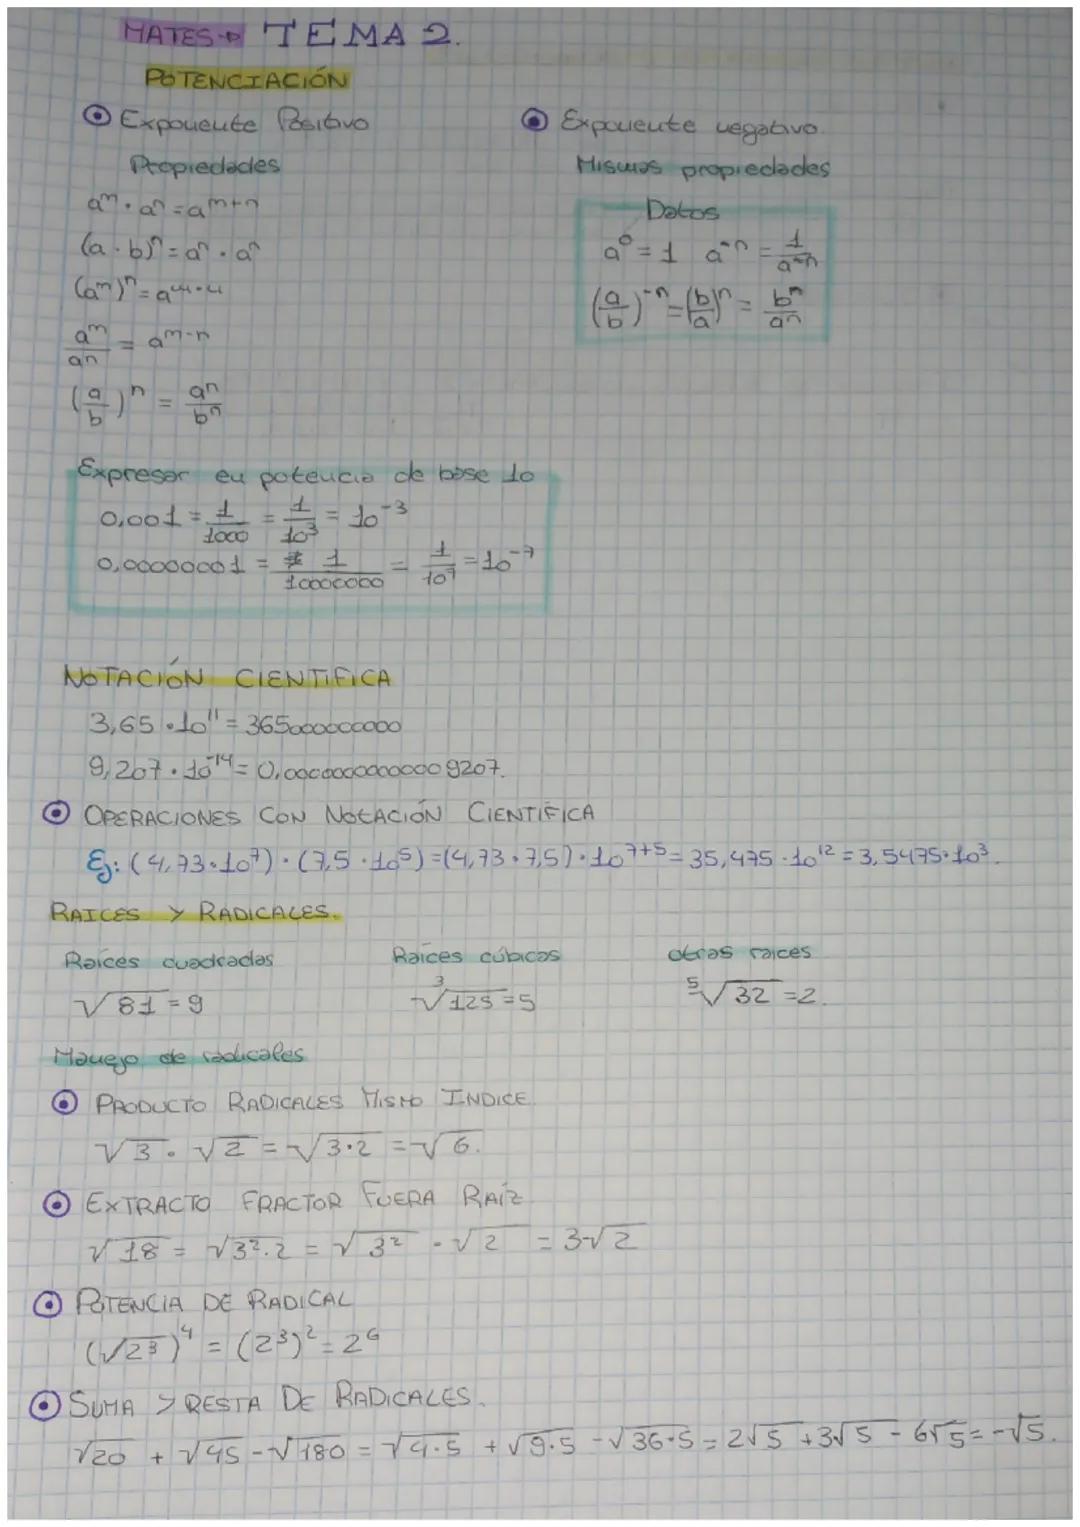 MATES→ TEMA 2.
POTENCIACIÓN
Exponente Positivo
Propiedades
aᵐ · aⁿ = aᵐ⁺ⁿ
(a · b)ⁿ = aⁿ · aⁿ
(aᵐ)ⁿ = aᵐ·ⁿ
aᵐ/aⁿ = aᵐ⁻ⁿ
(a/b)ⁿ = aⁿ/bⁿ
Exponente negativo.
Mismas propiedades
Datos
a⁰ = 1 a⁻ⁿ = 1/a⁻ⁿ
(a/b)⁻ⁿ = (b/a)ⁿ = bⁿ/aⁿ
Expresar en potencia de base 10
0,001 = 1/1000 = 1/10³ = 10⁻³
0,00000001 = 1/10000000 = 1/10⁷ = 10⁻⁷
NOTACIÓN CIENTÍFICA
3,65 · 10¹¹ = 365000000000
9,207 · 10⁻¹⁴ = 0,00000000000009207.
OPERACIONES CON NOTACIÓN CIENTÍFICA
Ej: (4,73·10⁷) · (7,5 · 10⁵) = (4,73 · 7,5) · 10⁷⁺⁵ = 35,475 · 10¹² = 3,5475·10³.
RAICES Y RADICALES.
Raíces cuadradas Raíces cúbicas otras raíces
√81 = 9 ³√125 = 5 ⁵√32 = 2.
Manejo de radicales
PRODUCTO RADICALES MISMO INDICE
√3 · √2 = √3·2 = √6.
EXTRACTO FRACTOR FUERA RAÍZ
√18 = √3²·2 = √3² · √2 = 3√2
POTENCIA DE RADICAL
(√2³)⁴ = (2³)² = 2⁶
SUMA Y RESTA DE RADICALES.
√20 + √45 - √180 = √4·5 + √9·5 - √36·5 = 2√5 + 3√5 - 6√5 = -√5.